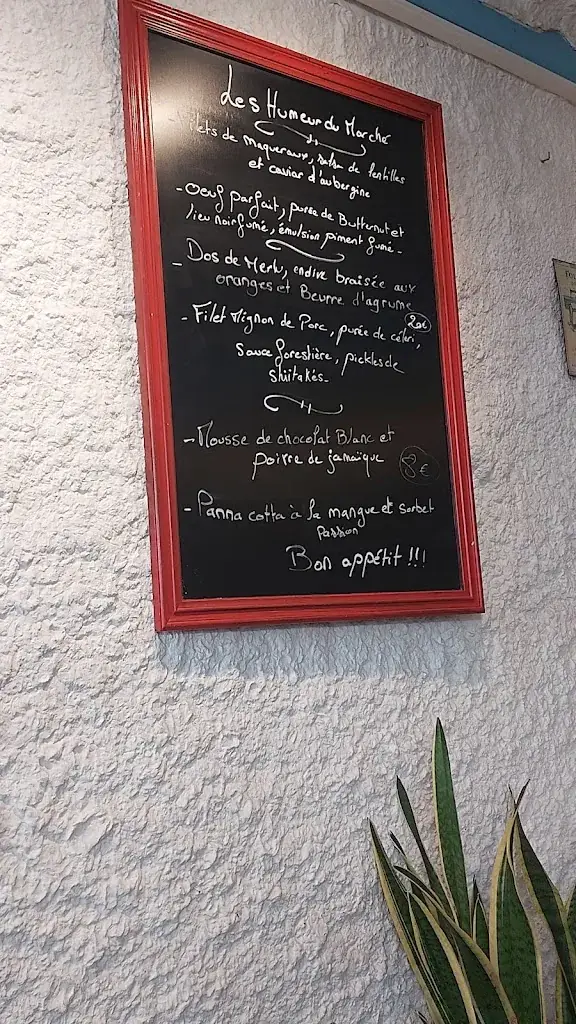 Les Humeur du Marché
ilets de maquereaux, salsa de lentilles
et caviar d'aubergine
- Oeuf parfait, purée de Butternut et
lieu noir fumé, émulsion piment fumé -
- Dos de Merlu, endive braisée aux
oranges et Beurre d'agrume
- Filet Mignon de Porc, purée de céleri, 20€
Sauce forestière, pickles de
shiitakés -
- Mousse de chocolat Blanc et
poivre de jamaïque 8€
- Panna cotta à la mangue et sorbet
Passion
Bon appétit !!!